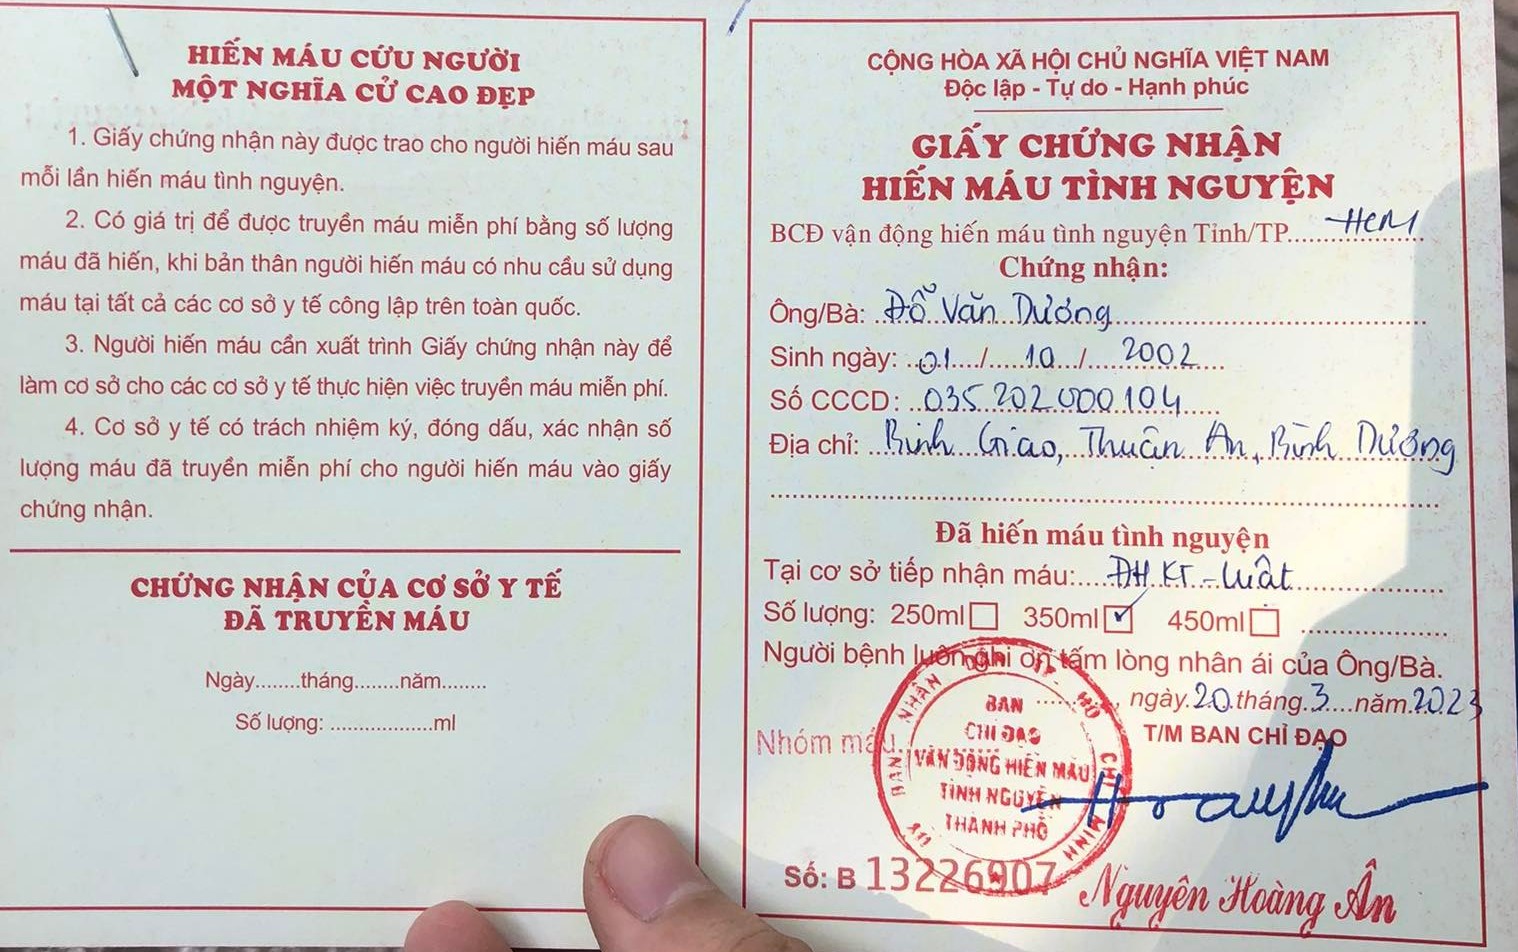 HIẾN MÁU CỨU NGƯỜI
MỘT NGHĨA CỬ CAO ĐẸP
1. Giấy chứng nhận này được trao cho người hiến máu sau
mỗi lần hiến máu tình nguyện.
2. Có giá trị để được truyền máu miễn phí bằng số lượng
máu đã hiến, khi bản thân người hiến máu có nhu cầu sử dụng
máu tại tất cả các cơ sở y tế công lập trên toàn quốc.
3. Người hiến máu cần xuất trình Giấy chứng nhận này để
làm cơ sở cho các cơ sở y tế thực hiện việc truyền máu miễn phí.
4. Cơ sở y tế có trách nhiệm ký, đóng dấu, xác nhận số
lượng máu đã truyền miễn phí cho người hiến máu vào giấy
chứng nhận.
CHỨNG NHẬN CỦA CƠ SỞ Y TẾ
ĐÃ TRUYỀN MÁU
Ngày........tháng........năm........
Số lượng: ..................ml
CỘNG HÒA XÃ HỘI CHỦ NGHĨA VIỆT NAM
Độc lập - Tự do - Hạnh phúc
GIẤY CHỨNG NHẬN
HIẾN MÁU TÌNH NGUYỆN
BCĐ vận động hiến máu tình nguyện Tỉnh/TP....HCM
Chứng nhận:
Ông/Bà: Đỗ Văn Dương
Sinh ngày: 01 / 10 / 2002
Số CCCD: 035 202 000 104
Địa chỉ: Bình Giao, Thuận An, Bình Dương
Đã hiến máu tình nguyện
Tại cơ sở tiếp nhận máu: ĐH KT - Luật
Số lượng: 250ml 350ml ✓ 450ml
Người bệnh luôn ghi ơn tấm lòng nhân ái của Ông/Bà.
ngày 20 tháng 3 năm 2023
T/M BAN CHỈ ĐẠO
Nhóm máu
ỦY BAN NHÂN DÂN TP. HỒ CHÍ MINH
BAN
CHỈ ĐẠO
VẬN ĐỘNG HIẾN MÁU
TÌNH NGUYỆN
THÀNH PHỐ
Số: B 13226907
Nguyễn Hoàng Ân